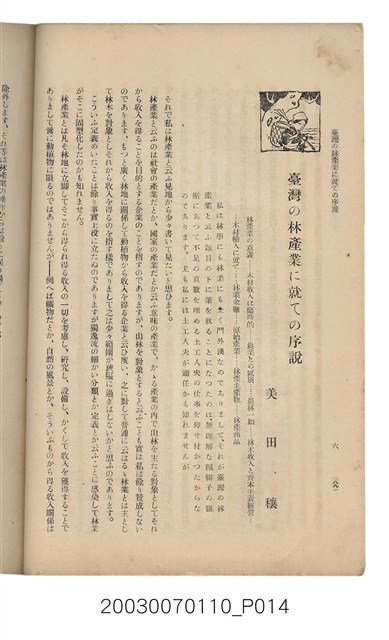 臺灣の林產業に就ての序說
六
臺灣の林產業に就ての序說
美田穰
林產業の意義…木材收入は臨時的…農業との區別…農林一如…林木收入と資本主義經營
…木材輸入に就て…林業金融…原始產業…林業生產物…林產商品
私は林學にも林業にも全く門外漢なのでありまして、それが臺灣の林
產業と云ふ題目の下に筆を執ることになつたのは、無理解な編輯子の强
据にあつて不足の頁數を埋める土工人夫の仕事を仰せ付かつたからな
のであります。尤も私には土工人夫が適任かも知れませんが
それで私は林產業と云ふ見地から少々書いて見たいと思ひます。
林產業と云ふのは社會の產業だとか、國家の產業だとか云ふ意味の產業で、かゝる產業の內で山林を主たる對象としてそれ
から收入を得ることを目的とする企業のことを指すのでありますが、山林を對象とすると云ふことも實は私は餘り贊成しない
のであります。もつと廣く林地に關係して動植物から收入を得る企業と云ひ度い、之に對して普通に云はるゝ林業とは主とし
て林木を對象としそれから收入を得るのを指す樣でありまして之は少々範圍が狹隘に過ぎはしないかと思ふのであります。
こういふ定義めいたことは餘り事實上役に立たぬのでありますが獨逸流の細かい分類とか定義とか云ふことに感染して林業
がそこに固型化したのかも知れません。
林產業とは凡そ林地に立脚してそこから得られ得る收入の一切を考慮し、硏究し、設備し、かくして收入を獲得することで
ありまして啻に動植物に限るのではありませんが――例へば礦物だとか、自然の風景とか、そういふものから得る收入關係は
除外します。それ等は林產業の
20030070110_P014